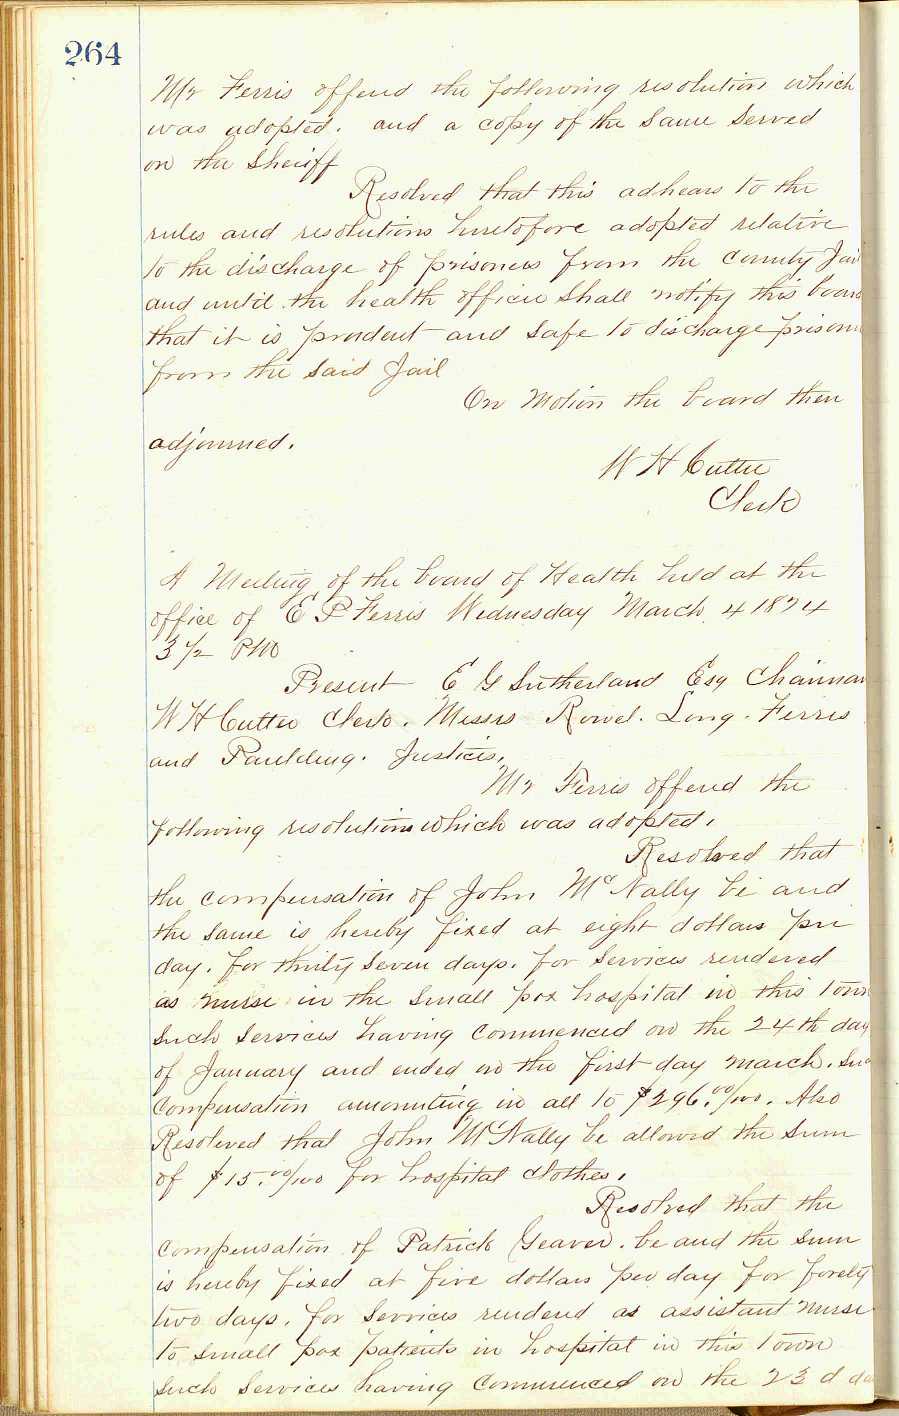 264
Mr Ferris offerd the following resolution which
was adopted. and a copy of the Same Served
on the Sheriff
Resolved that this adhears to the
rules and resolutions heretofore adopted relative
to the discharge of prisoners from the County Jail
and until the health officer Shall notify this board
that it is prudent and Safe to discharge prisoners
from the Said Jail
On Motion the board then
adjourned.
W H Cutter
Clerk
A Meeting of the board of Health held at the
office of E P Ferris Wednesday March 4 1874
3 1/2 PM
Present E G Sutherland Esq Chairman
W H Cutter Clerk. Messrs Rowel. Long. Ferris
and Paulding. Justices.
Mr Ferris offerd the
following resolutions which was adopted.
Resolved that
the compensation of John McNally be and
the Same is hereby fixed at eight dollars per
day. for thirty Seven days. for Services rendered
as nurse in the Small pox hospital in this Town
Such Services having Commenced on the 24th day
of January and ended on the first day march. Such
Compensation amounting in all to $296.00/100. Also
Resoleved that John McNally be allowed the Sum
of $15.00/100 for hospital clothes.
Resolved that the
Compensation of Patrick Geaver. be and the Sum
is hereby fixed at five dollars per day for forety
two days. for Services renderd as assistant nurse
to Small pox patients in hospital in this Town
Such Services having Commenced on the 23 d day